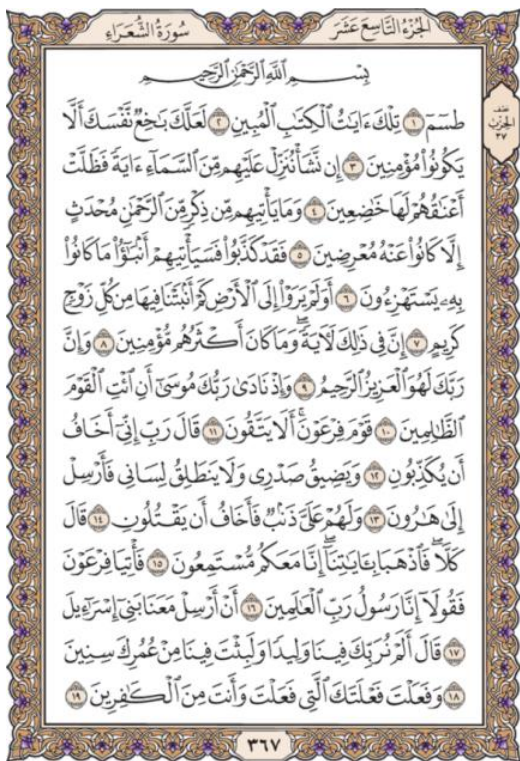 الجُزْءُ التَّاسِعَ عَشَرَ سُورَةُ الشُّعَرَاءِ
بِسْمِ اللَّهِ الرَّحْمَٰنِ الرَّحِيمِ
نصف
الحزب
٣٧
طسٓمٓ ١ تِلْكَ ءَايَٰتُ ٱلْكِتَٰبِ ٱلْمُبِينِ ٢ لَعَلَّكَ بَٰخِعٌ نَّفْسَكَ أَلَّا
يَكُونُوا۟ مُؤْمِنِينَ ٣ إِن نَّشَأْ نُنَزِّلْ عَلَيْهِم مِّنَ ٱلسَّمَآءِ ءَايَةً فَظَلَّتْ
أَعْنَٰقُهُمْ لَهَا خَٰضِعِينَ ٤ وَمَا يَأْتِيهِم مِّن ذِكْرٍ مِّنَ ٱلرَّحْمَٰنِ مُحْدَثٍ
إِلَّا كَانُوا۟ عَنْهُ مُعْرِضِينَ ٥ فَقَدْ كَذَّبُوا۟ فَسَيَأْتِيهِمْ أَنۢبَٰٓؤُا۟ مَا كَانُوا۟
بِهِۦ يَسْتَهْزِءُونَ ٦ أَوَلَمْ يَرَوْا۟ إِلَى ٱلْأَرْضِ كَمْ أَنۢبَتْنَا فِيهَا مِن كُلِّ زَوْجٍ
كَرِيمٍ ٧ إِنَّ فِى ذَٰلِكَ لَءَايَةً ۖ وَمَا كَانَ أَكْثَرُهُم مُّؤْمِنِينَ ٨ وَإِنَّ
رَبَّكَ لَهُوَ ٱلْعَزِيزُ ٱلرَّحِيمُ ٩ وَإِذْ نَادَىٰ رَبُّكَ مُوسَىٰٓ أَنِ ٱئْتِ ٱلْقَوْمَ
ٱلظَّٰلِمِينَ ١٠ قَوْمَ فِرْعَوْنَ ۚ أَلَا يَتَّقُونَ ١١ قَالَ رَبِّ إِنِّىٓ أَخَافُ
أَن يُكَذِّبُونِ ١٢ وَيَضِيقُ صَدْرِى وَلَا يَنطَلِقُ لِسَانِى فَأَرْسِلْ
إِلَىٰ هَٰرُونَ ١٣ وَلَهُمْ عَلَىَّ ذَنۢبٌ فَأَخَافُ أَن يَقْتُلُونِ ١٤ قَالَ
كَلَّا ۖ فَٱذْهَبَا بِـَٔايَٰتِنَآ ۖ إِنَّا مَعَكُم مُّسْتَمِعُونَ ١٥ فَأْتِيَا فِرْعَوْنَ
فَقُولَآ إِنَّا رَسُولُ رَبِّ ٱلْعَٰلَمِينَ ١٦ أَنْ أَرْسِلْ مَعَنَا بَنِىٓ إِسْرَٰٓءِيلَ
١٧ قَالَ أَلَمْ نُرَبِّكَ فِينَا وَلِيدًا وَلَبِثْتَ فِينَا مِنْ عُمُرِكَ سِنِينَ
١٨ وَفَعَلْتَ فَعْلَتَكَ ٱلَّتِى فَعَلْتَ وَأَنتَ مِنَ ٱلْكَٰفِرِينَ ١٩
٣٦٧